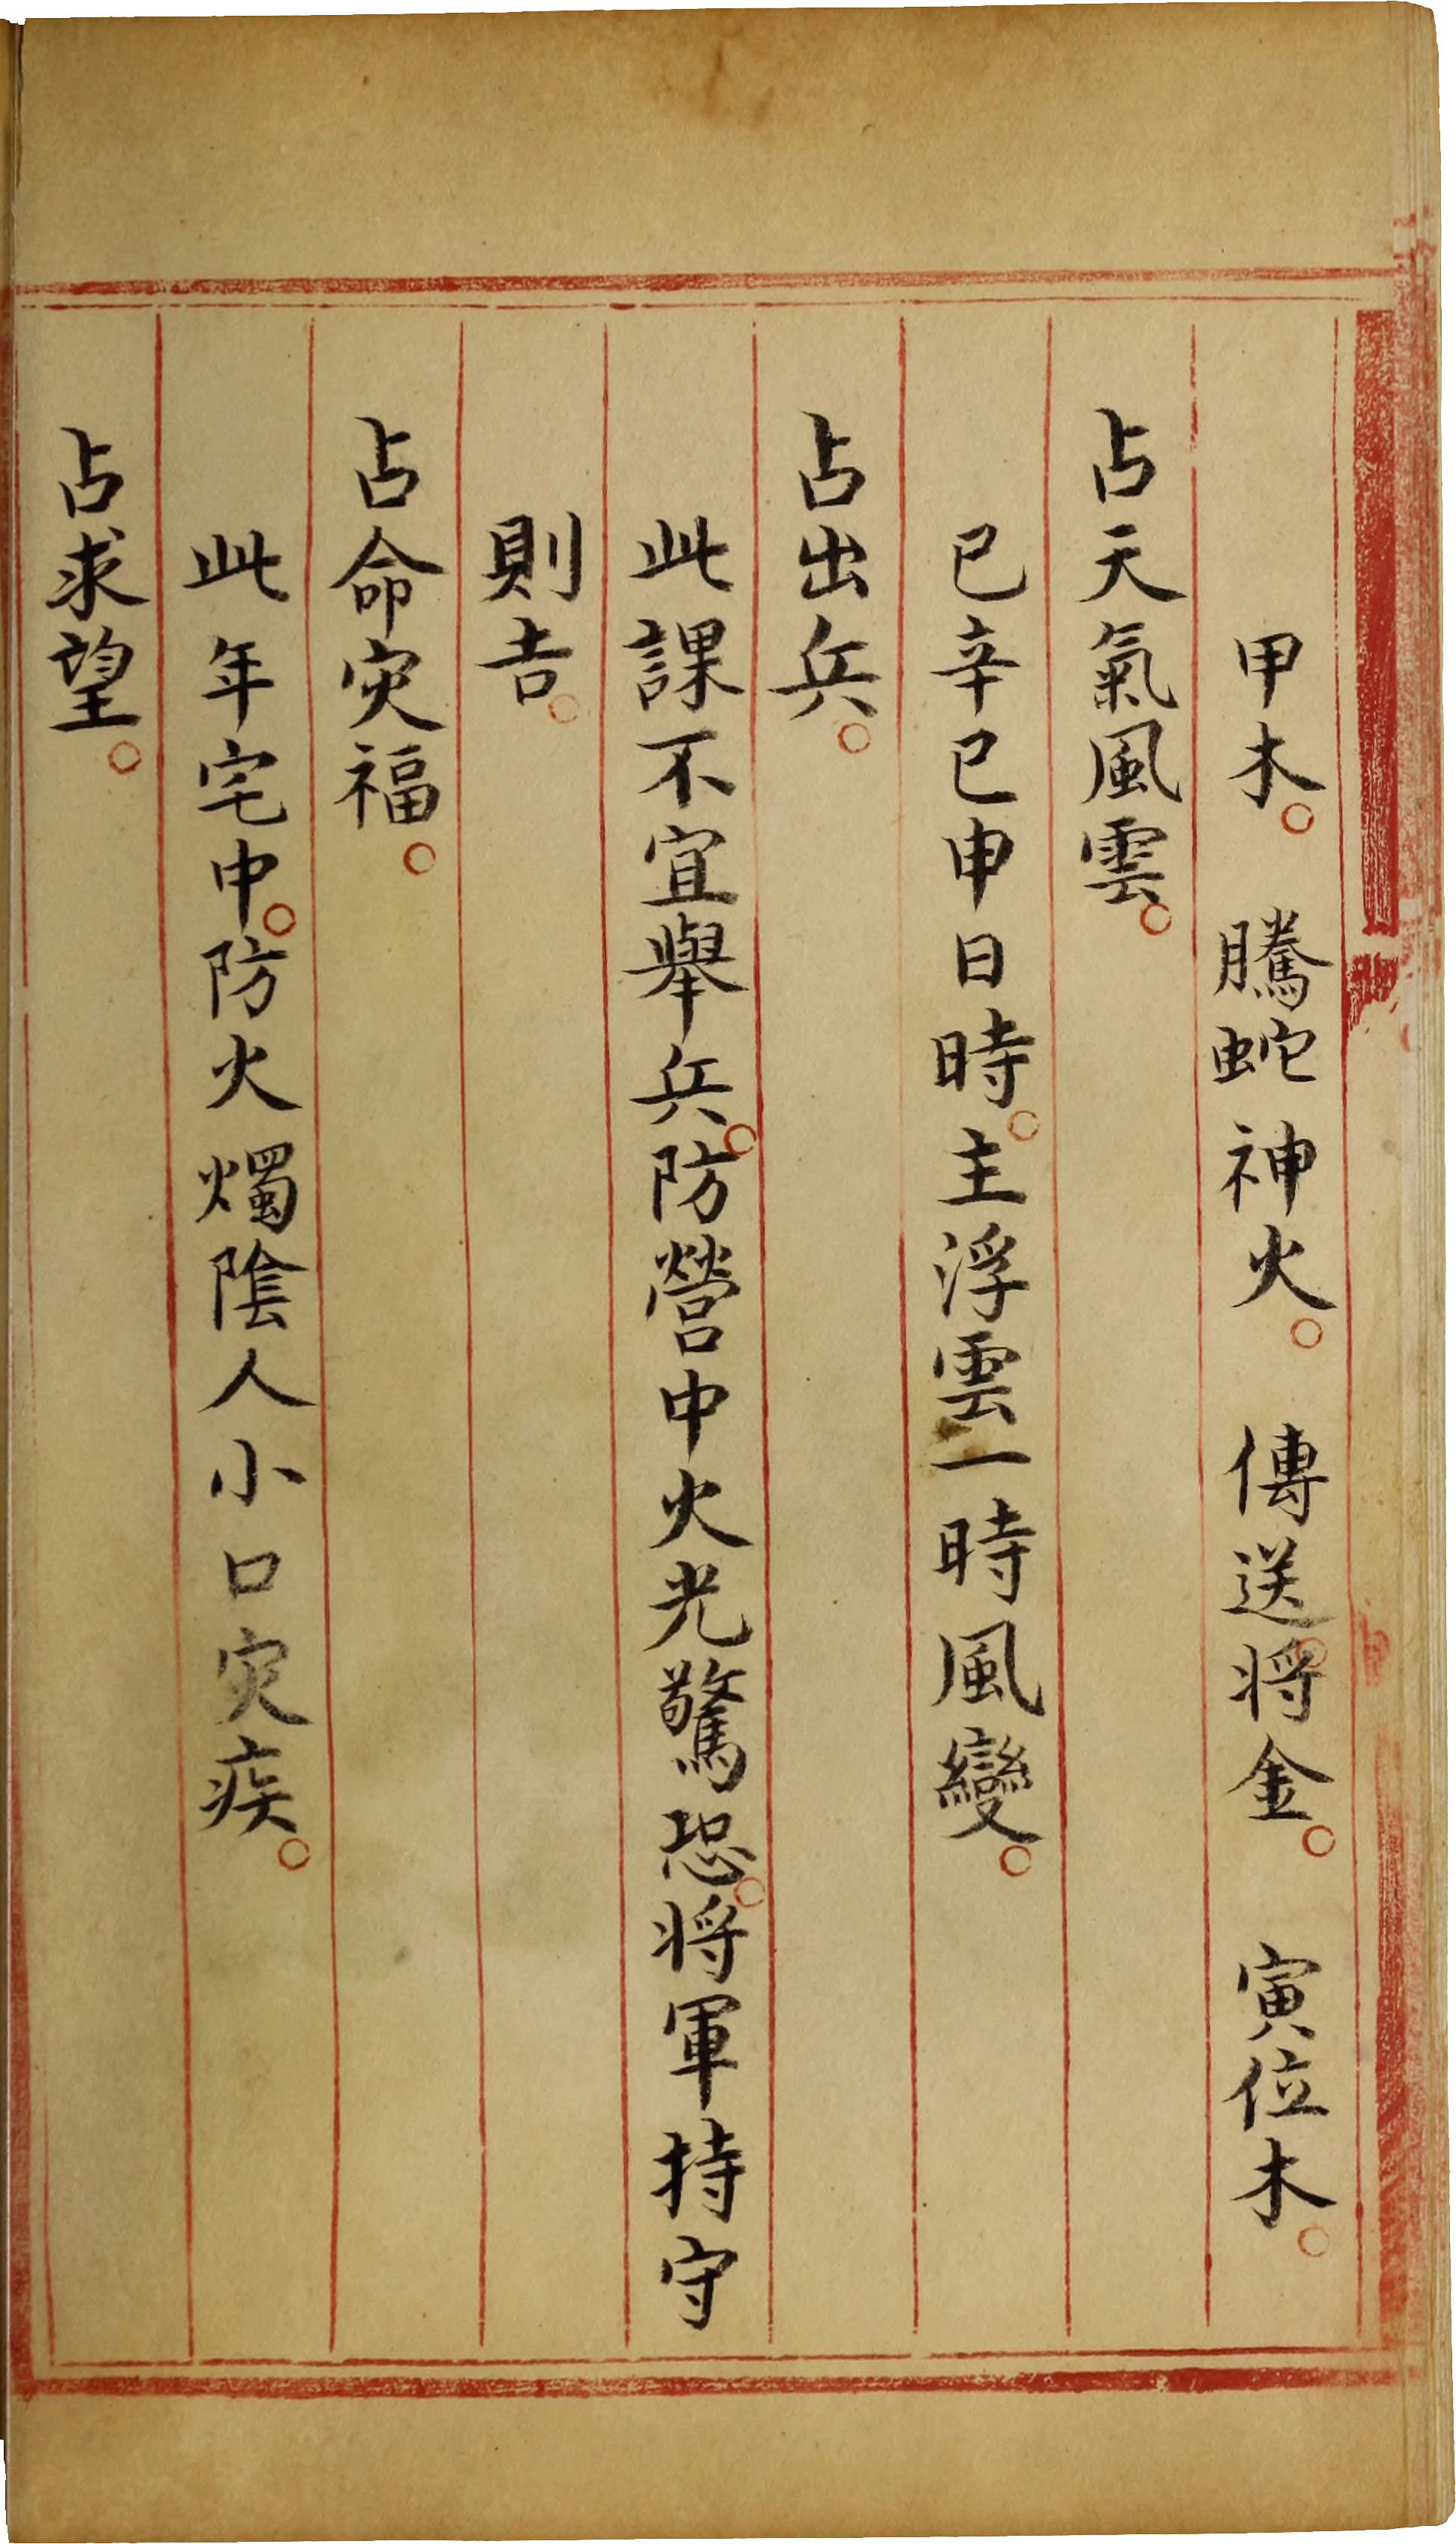 甲木。　騰蛇神火。　傳送。将金。　寅位木。
占天氣風雲。
巳辛巳申日時。主浮雲一時風變。
占出兵。
此課不宜舉兵。防營中火光驚恐。将軍持守
則吉。
占命灾福。
此年宅中。防火燭陰人小口灾疾。
占求望。